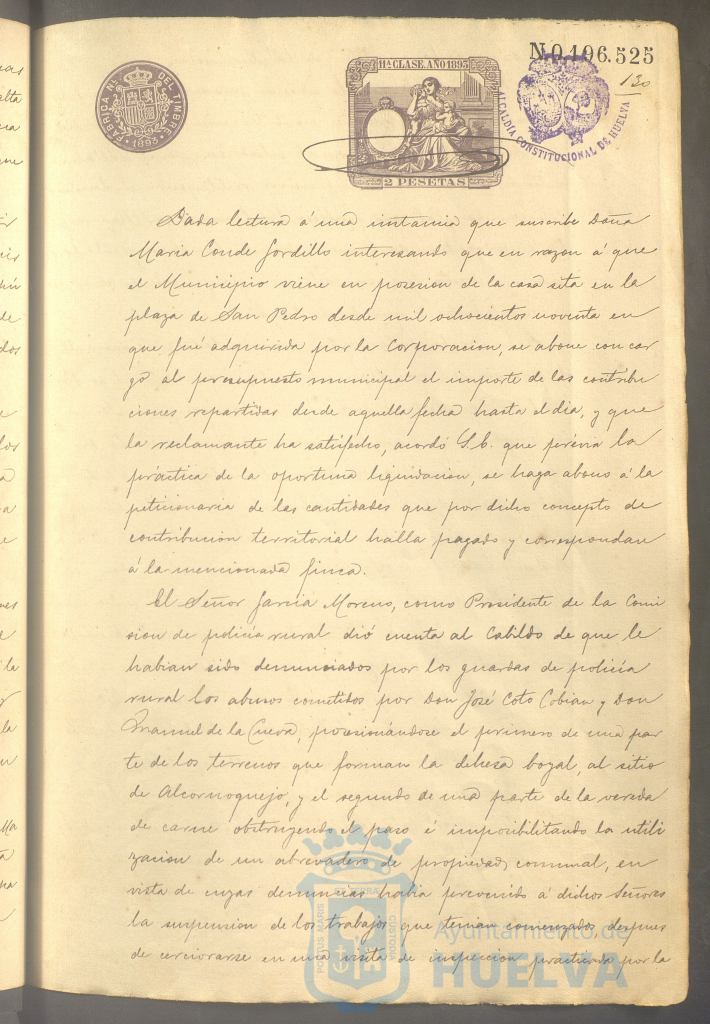 N.0.196.525
130
FABRICA NL. DEL TIMBRE
1893
11ª CLASE. AÑO 1893
2 PESETAS
ALCALDÍA CONSTITUCIONAL DE HUELVA
Dada lectura á una instancia que suscribe Doña
Maria Conde Gordillo interesando que en razon á que
el Municipio viene en posesion de la casa sita en la
plaza de San Pedro desde mil ochocientos noventa en
que fué adquirida por la Corporacion, se abone con car
go al presupuesto municipal el importe de las contribu
ciones repartidas desde aquella fecha hasta el dia, y que
la reclamante ha satisfecho, acordó S.C. que previa la
práctica de la oportuna liquidacion, se haga abono á la
peticionaria de las cantidades que por dicho concepto de
contribucion territorial halla pagado y correspondan
á la mencionada finca.
El Señor Garcia Moreno, como Presidente de la Comi
sion de policía rural dió cuenta al Cabildo de que le
habian sido denunciados por los guardas de policía
rural los abusos cometidos por Don José Coto Cobian y Don
Manuel de la Cueva, posesionándose el primero de una par
te de los terrenos que forman la dehesa boyal, al sitio
de Alcornoquejo, y el segundo de una parte de la vereda
de carne obstruyendo el paso é imposibilitando la utili
zacion de un abrevadero de propiedad comunal, en
vista de cuyas denuncias habia prevenido á dichos Señores
la suspension de los trabajos que tenian comenzados, despues
de cerciorarse en una visita de inspeccion practicada por la
PORTUS MARIS ET TERRÆ CUSTODIA
Ayuntamiento de
HUELVA